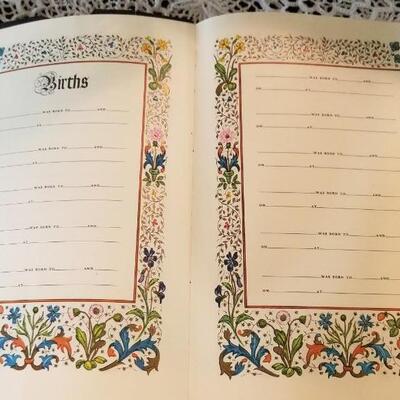 Births
WAS BORN TO AND
AT
WAS BORN TO AND
AT
WAS BORN TO AND
AT
WAS BORN TO AND
AT
WAS BORN TO AND
ON AT
WAS BORN TO AND
ON AT
WAS BORN TO AND
ON AT
WAS BORN TO AND
ON AT
WAS BORN TO AND
ON AT